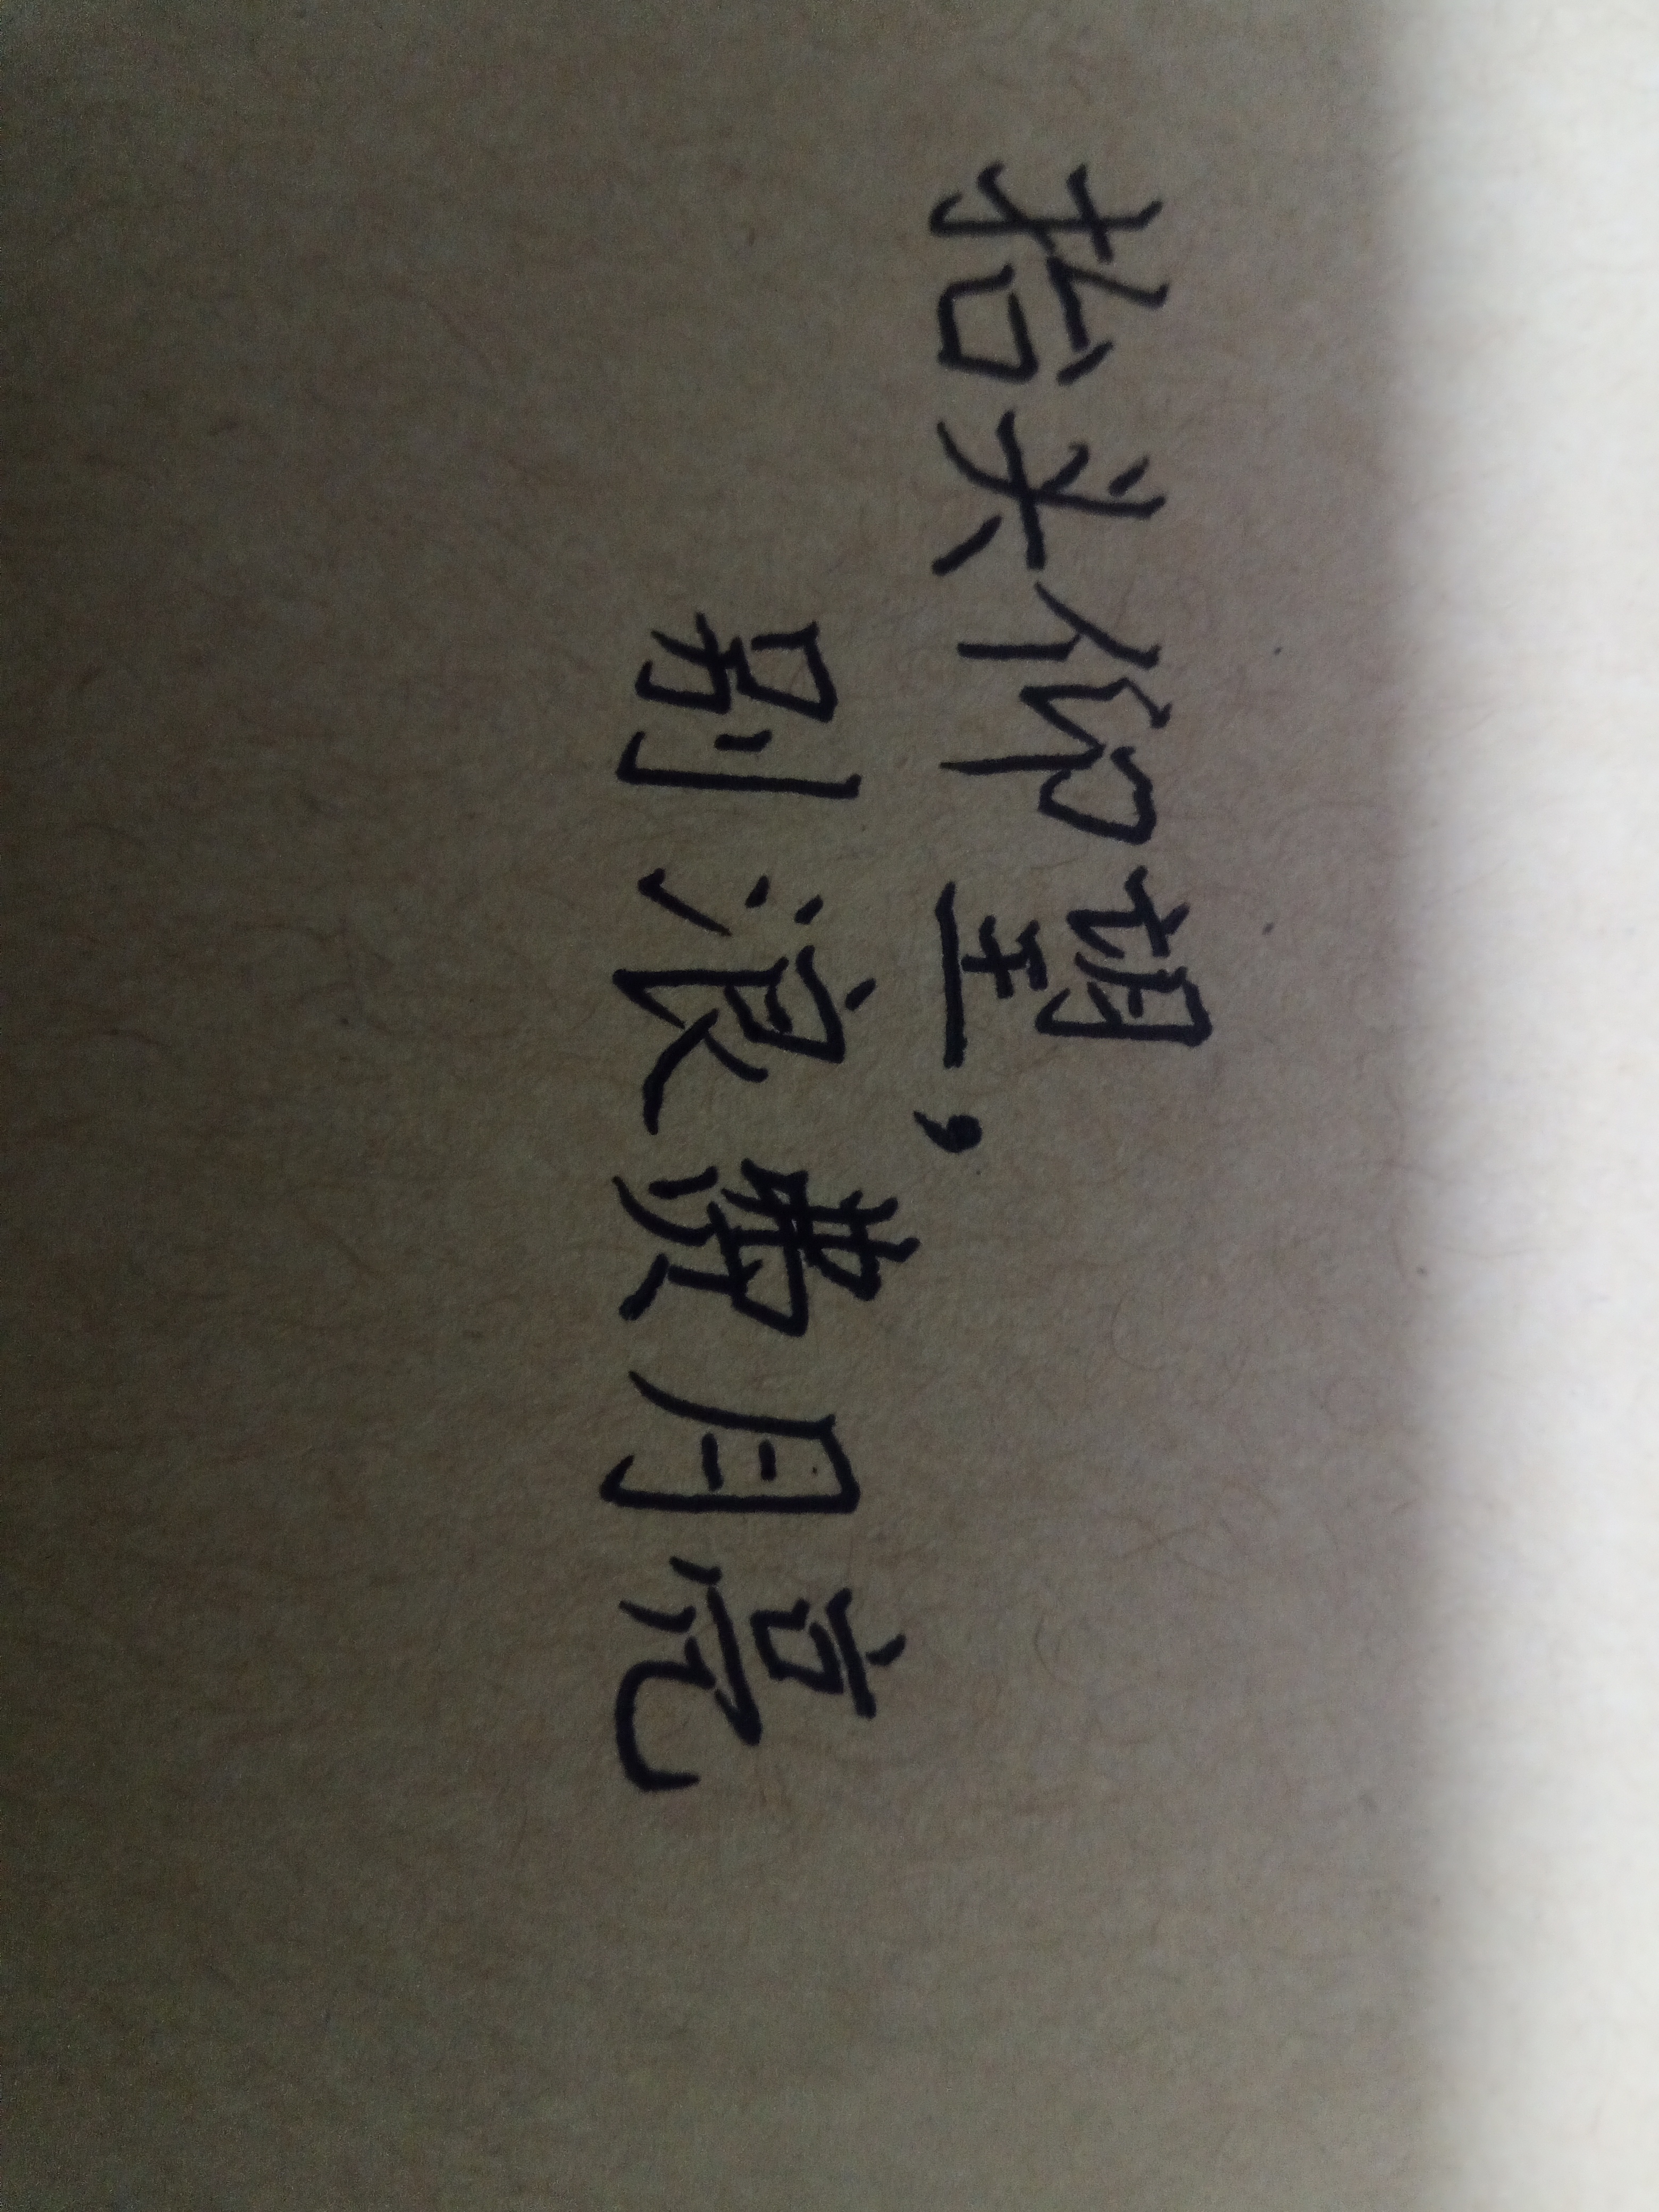 抬头仰望，
别浪费月亮